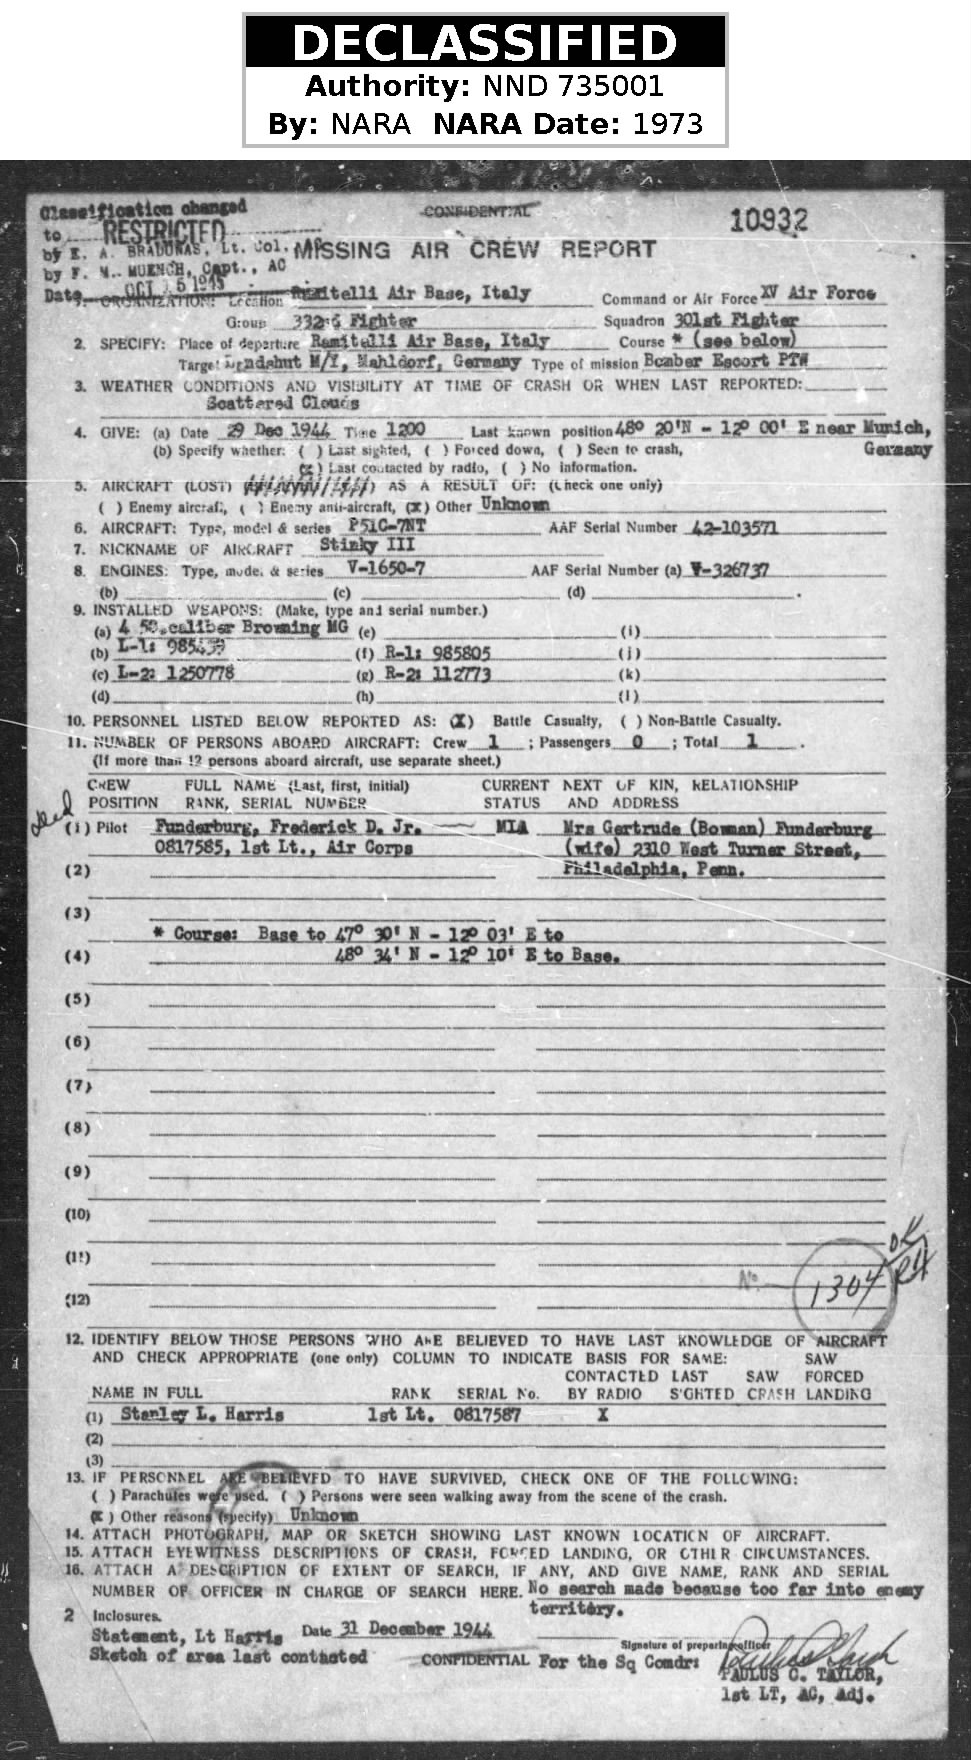 DECLASSIFIED
Authority: NND 735001
By: NARA NARA Date: 1973
Classification changed
to RESTRICTED
by E. A. BRADUNAS, Lt. Col. AC
by F. M. MUENCH, Capt., AC
Date OCT 15 1945
CONFIDENTIAL
10932
MISSING AIR CREW REPORT
1. ORGANIZATION: Location Ramitelli Air Base, Italy Command or Air Force XV Air Force
Group 332nd Fighter Squadron 301st Fighter
2. SPECIFY: Place of departure Ramitelli Air Base, Italy Course * (see below)
Target Landshut M/Y, Mahldorf, Germany Type of mission Bomber Escort PTW
3. WEATHER CONDITIONS AND VISIBILITY AT TIME OF CRASH OR WHEN LAST REPORTED:
Scattered Clouds
4. GIVE: (a) Date 29 Dec 1944 Time 1200 Last known position 48° 20'N - 12° 00' E near Munich,
Germany
(b) Specify whether: ( ) Last sighted, ( ) Forced down, ( ) Seen to crash,
(x) Last contacted by radio, ( ) No information.
5. AIRCRAFT (LOST) AS A RESULT OF: (Check one only)
( ) Enemy aircraft, ( ) Enemy anti-aircraft, (x) Other Unknown
6. AIRCRAFT: Type, model & series P51C-7NT AAF Serial Number 42-103571
7. NICKNAME OF AIRCRAFT Stinky III
8. ENGINES: Type, model & series V-1650-7 AAF Serial Number (a) V-326737
(b) (c) (d) .
9. INSTALLED WEAPONS: (Make, type and serial number.)
(a) 4 50.caliber Browning MG (e) (i)
(b) L-1: (f) R-1: 985805 (j)
(c) L-2: 1250778 (g) R-2: 112773 (k)
(d) (h) (l)
10. PERSONNEL LISTED BELOW REPORTED AS: (X) Battle Casualty, ( ) Non-Battle Casualty.
11. NUMBER OF PERSONS ABOARD AIRCRAFT: Crew 1 ; Passengers 0 ; Total 1 .
(If more than 12 persons aboard aircraft, use separate sheet.)
CREW FULL NAME (Last, first, initial) CURRENT NEXT OF KIN, RELATIONSHIP
POSITION RANK, SERIAL NUMBER STATUS AND ADDRESS
Ded
(1) Pilot Funderburg, Frederick D. Jr. MIA Mrs Gertrude (Bowman) Funderburg
0817585, 1st Lt., Air Corps (wife) 2310 West Turner Street,
(2) Philadelphia, Penn.
(3)
* Course: Base to 47° 30' N - 12° 03' E to
(4) 48° 34' N - 12° 10' E to Base.
(5)
(6)
(7)
(8)
(9)
(10)
(11)
OK
No. 1304 RH
(12)
12. IDENTIFY BELOW THOSE PERSONS WHO ARE BELIEVED TO HAVE LAST KNOWLEDGE OF AIRCRAFT
AND CHECK APPROPRIATE (one only) COLUMN TO INDICATE BASIS FOR SAME: SAW
CONTACTED LAST SAW FORCED
NAME IN FULL RANK SERIAL No. BY RADIO SIGHTED CRASH LANDING
(1) Stanley L. Harris 1st Lt. 0817587 X
(2)
(3)
13. IF PERSONNEL ARE BELIEVED TO HAVE SURVIVED, CHECK ONE OF THE FOLLOWING:
( ) Parachutes were used. ( ) Persons were seen walking away from the scene of the crash.
(x) Other reasons (specify) Unknown
14. ATTACH PHOTOGRAPH, MAP OR SKETCH SHOWING LAST KNOWN LOCATION OF AIRCRAFT.
15. ATTACH EYEWITNESS DESCRIPTIONS OF CRASH, FORCED LANDING, OR OTHER CIRCUMSTANCES.
16. ATTACH A DESCRIPTION OF EXTENT OF SEARCH, IF ANY, AND GIVE NAME, RANK AND SERIAL
NUMBER OF OFFICER IN CHARGE OF SEARCH HERE. No search made because too far into enemy
territory.
2 Inclosures.
Statement, Lt Harris Date 31 December 1944
Signature of preparing officer
Sketch of area last contacted CONFIDENTIAL For the Sq Comdr:
PAULUS C. TAYLOR,
1st LT, AC, Adj.